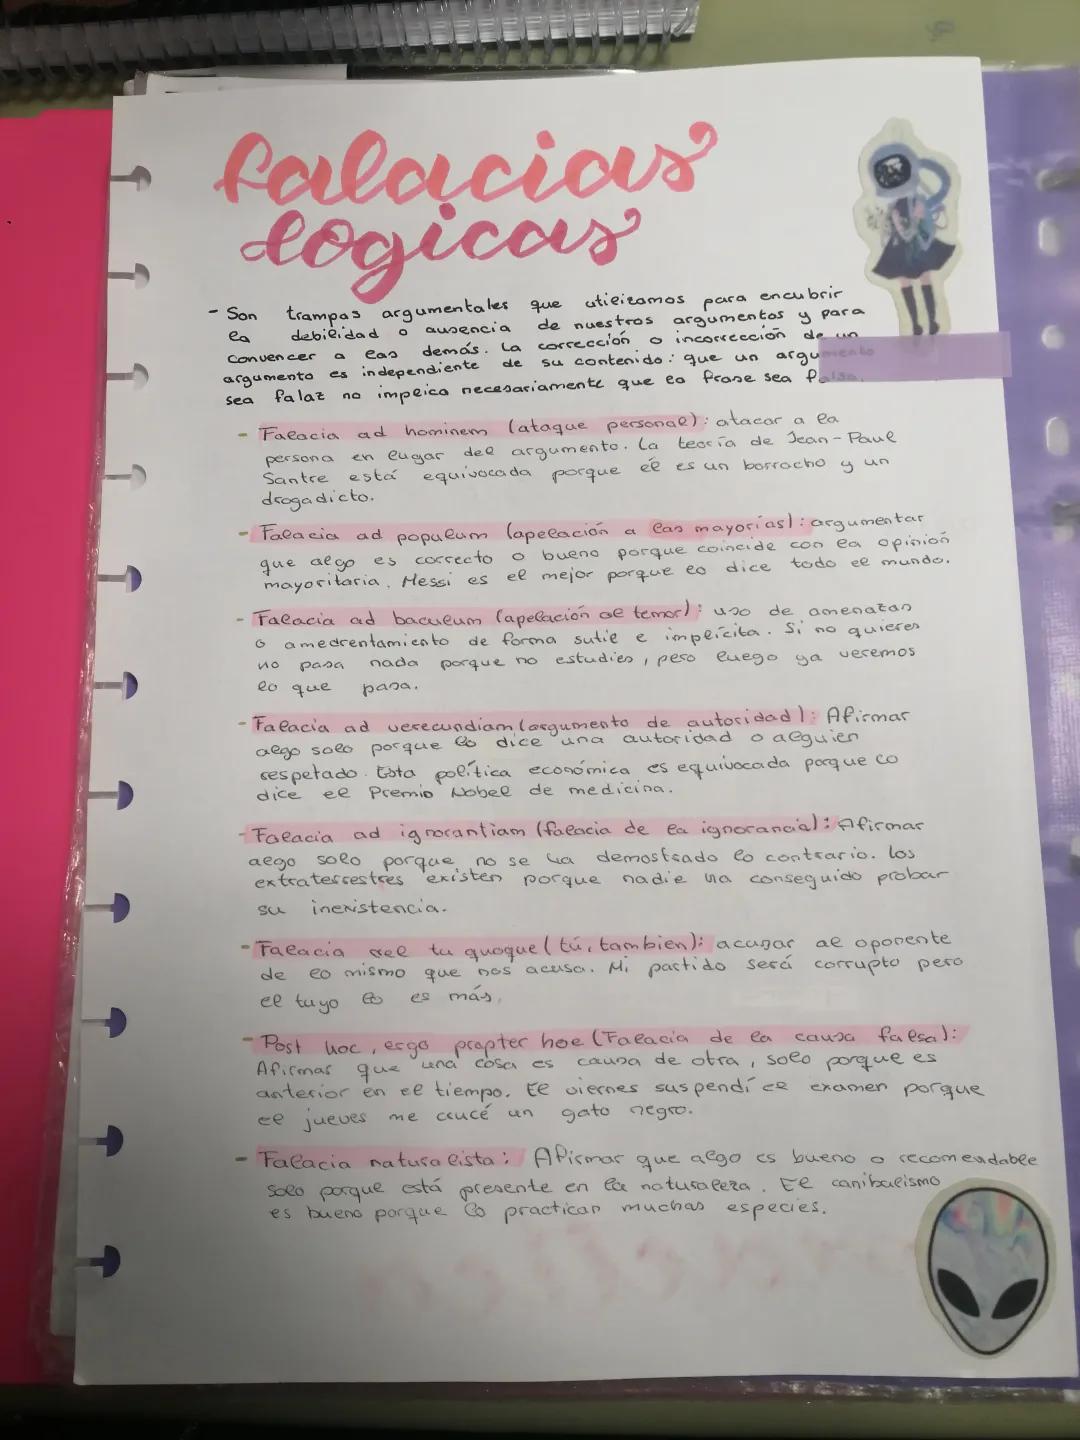 falacias
logicas
- Son trampas argumentales que utilizamos para encubrir
la debilidad o ausencia de nuestros argumentos y para
convencer a las demás. La corrección o incorrección de un
argumento es independiente de su contenido: que un argumento
sea falaz no implica necesariamente que la frase sea falsa.
- Falacia ad hominem (ataque personal): atacar a la
persona en lugar del argumento. La teoría de Jean-Paul
Santre está equivocada porque él es un borracho y un
drogadicto.
- Falacia ad populum (apelación a las mayorías): argumentar
que algo es correcto o bueno porque coincide con la opinión
mayoritaria. Messi es el mejor porque lo dice todo el mundo.
- Falacia ad baculum (apelación al temor): uso de amenazas
o amedrentamiento de forma sutil e implícita. Si no quieres
no pasa nada porque no estudies, pero luego ya veremos
lo que pasa.
- Falacia ad verecundiam (argumento de autoridad): Afirmar
algo solo porque lo dice una autoridad o alguien
respetado. Esta política económica es equivocada porque lo
dice el Premio Nobel de medicina.
- Falacia ad ignorantiam (falacia de la ignorancia): Afirmar
algo solo porque no se ha demostrado lo contrario. Los
extraterrestres existen porque nadie ha conseguido probar
su inexistencia.
- Falacia del tu quoque (tú, tambien): acusar al oponente
de lo mismo que nos acusa. Mi partido será corrupto pero
el tuyo lo es más.
- Post hoc, ergo propter hoc (Falacia de la causa falsa):
Afirmar que una cosa es causa de otra, solo porque es
anterior en el tiempo. El viernes suspendí el examen porque
el jueves me crucé un gato negro.
- Falacia naturalista: Afirmar que algo es bueno o recomendable
solo porque está presente en la naturaleza. El canibalismo
es bueno porque lo practican muchas especies.